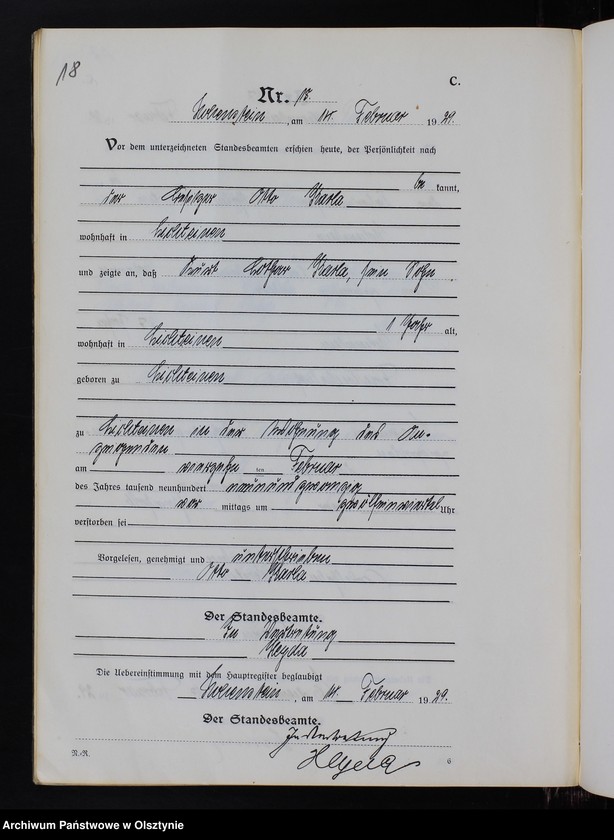 18
C.
Nr. 18.
Hohenstein, am 14. Februar 1929.
Vor dem unterzeichneten Standesbeamten erschien heute, der Persönlichkeit nach
be kannt,
der Otto
wohnhaft in
und zeigte an, daß Kurt Lothar, sein Sohn
1 Jahr alt,
wohnhaft in
geboren zu
zu in der Wohnung des An-
zeigenden
am vierzehn ten Februar
des Jahres tausend neunhundert neunundzwanzig
vor mittags um zwölfeinviertel Uhr
verstorben sei
Vorgelesen, genehmigt und unterschrieben
Otto
Der Standesbeamte.
In Vertretung
Heyda
Die Uebereinstimmung mit dem Hauptregister beglaubigt
Hohenstein, am 14. Februar 1929.
Der Standesbeamte.
In Vertretung
Heyda
N.-R.
6
Archiwum Państwowe w Olsztynie